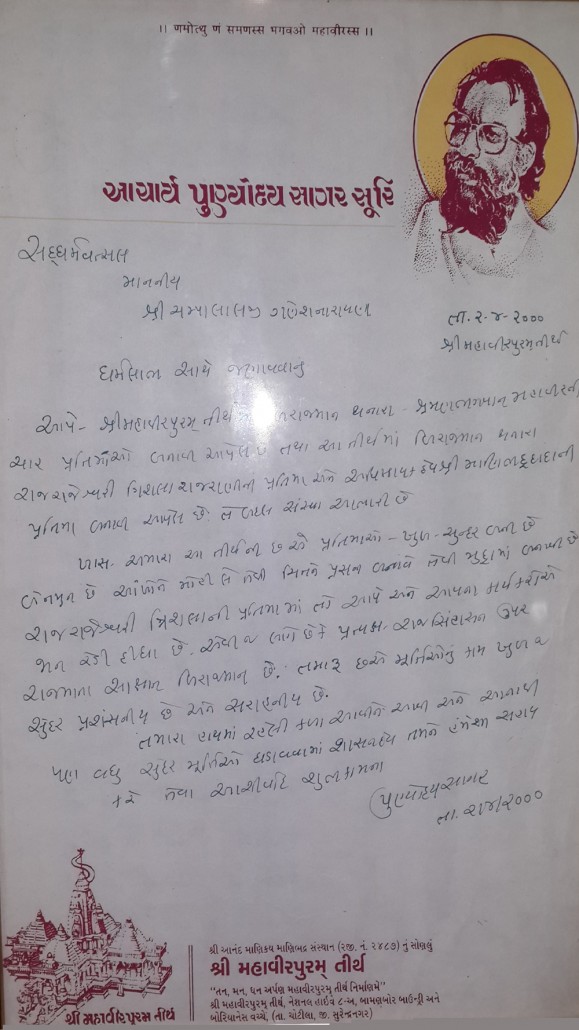 ।। णमोत्थु णं समणस्स भगवओ महावीरस्स ।।
આચાર્ય પુણ્યોદય સાગર સૂરિ
સદ્ધર્મવત્સલ
માનનીય
શ્રી ચમ્પાલાલજી ગણેશનારાયણ
તા. ૨-૪-૨૦૦૦
શ્રી મહાવીરપુરમ્ તીર્થ
ધર્મલાભ સાથે જણાવવાનું
આપે - શ્રી મહાવીરપુરમ્ તીર્થમાં બિરાજમાન થનારા - શ્રમણ ભગવાન મહાવીરની
ચાર પ્રતિમાઓ બનાવી આપેલ તથા આ તીર્થમાં બિરાજમાન થનારા
રાજરાજેશ્વરી ત્રિશલા રાજરાણીની પ્રતિમા અને અધિષ્ઠાયક દેવ શ્રી માણિભદ્રદાદાની
પ્રતિમા બનાવી આપેલ છે. તે બદલ સંસ્થા આભારી છે
ખાસ - અમારા આ તીર્થની છ એ પ્રતિમાઓ - ખુબ - સુન્દર બની છે
બેનમુન છે આંખોને મોહી લે તેવી મનને પ્રસન્ન બનાવે તેવી મુદ્રામાં બનાવી છે
રાજરાજેશ્વરી ત્રિશલાની પ્રતિમામાં તો આપે અને આપના કાર્યકરોએ
જાન રેડી દીધા છે. એવી જ લાગે છે કે પ્રત્યક્ષ - રાજસિંહાસન ઉપર
રાજમાતા સાક્ષાત બિરાજમાન છે. તમારૂ છએ મૂર્તિઓનું કામ ખુબ જ
સુંદર પ્રશંસનીય છે અને સરાહનીય છે.
તમારા હાથમાં રહેલી કળા આવીને આવી અને આનાથી
પણ વધુ સુંદર મૂર્તિઓ ઘડાવવામાં શાસનદેવ તમને હંમેશા સહાય
કરે તેવા આશીર્વાદ શુભકામના
પુણ્યોદયસાગર
તા. ૨/૪/૨૦૦૦
શ્રી આનંદ માણિક્ય માણિભદ્ર સંસ્થાન (રજી. નં. ૨૪૮૭) નું સોણલું
શ્રી મહાવીરપુરમ્ તીર્થ
"તન, મન, ધન અર્પણ મહાવીરપુરમ્ તીર્થ નિર્માણમે"
શ્રી મહાવીરપુરમ્ તીર્થ, નેશનલ હાઈવે ૮-અ, બામણબોર બાઉન્ડ્રી અને
બોરિયાનેસ વચ્ચે, (તા. ચોટીલા, જી. સુરેન્દ્રનગર)
શ્રી મહાવીરપુરમ તીર્થ